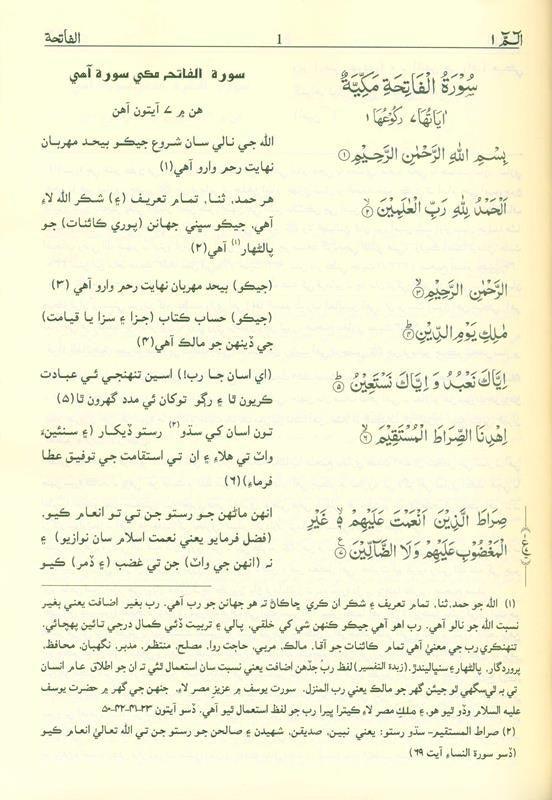 الٓمّٓ ١
1
الفاتحة
سُوْرَةُ الْفَاتِحَةِ مَكِّيَّةٌ
اٰيَاتُهَا ٧ رُكُوْعُهَا ١
بِسْمِ اللّٰهِ الرَّحْمٰنِ الرَّحِيْمِ ١
اَلْحَمْدُ لِلّٰهِ رَبِّ الْعٰلَمِيْنَ ۙ ٢
الرَّحْمٰنِ الرَّحِيْمِ ۙ ٣
مٰلِكِ يَوْمِ الدِّيْنِ ؕ ٤
اِيَّاكَ نَعْبُدُ وَ اِيَّاكَ نَسْتَعِيْنُ ؕ ٥
اِهْدِنَا الصِّرَاطَ الْمُسْتَقِيْمَ ۙ ٦
صِرَاطَ الَّذِيْنَ اَنْعَمْتَ عَلَيْهِمْ ۙ غَيْرِ
الْمَغْضُوْبِ عَلَيْهِمْ وَلَا الضَّآلِّيْنَ ٧
سورة الفاتحہ مڪي سورة آھي
ھن ۾ ٧ آيتون آھن
الله جي نالي سان شروع جيڪو بيحد مھربان
نھايت رحم وارو آھي(١)
ھر حمد، ثنا، تمام تعريف (۽) شڪر الله لاءِ
آھي، جيڪو سڀني جھانن (پوري ڪائنات) جو
پالڻھار(١) آھي(٢)
(جيڪو) بيحد مھربان نھايت رحم وارو آھي (٣)
(جيڪو) حساب ڪتاب (جزا ۽ سزا يا قيامت)
جي ڏينھن جو مالڪ آھي(۴)
(اي اسان جا رب!) اسين تنھنجي ئي عبادت
ڪريون ٿا ۽ رڳو توکان ئي مدد گھرون ٿا(۵)
تون اسان کي سڌو(٢) رستو ڏيکار (۽ سنئينءَ
واٽ تي ھلاءِ ۽ ان تي استقامت جي توفيق عطا
فرماءِ)(٦)
انھن ماڻھن جو رستو جن تي تو انعام ڪيو،
(فضل فرمايو يعني نعمت اسلام سان نوازيو) ۽
نہ (انھن جي واٽ) جن تي غضب (۽ ڏمر) ڪيو
(١) الله جو حمد، ثنا، تمام تعريف ۽ شڪر ان ڪري ڇاڪاڻ تہ ھو جھانن جو رب آھي. رب بغير اضافت يعني بغير
نسبت الله جو نالو آھي. رب اھو آھي جيڪو ڪنھن شي کي خلقي، پالي ۽ تربيت ڏئي ڪمال درجي تائين پھچائي.
تنھنڪري رب جي معنيٰ آھي تمام ڪائنات جو آقا، مالڪ، مربي، حاجت روا، مصلح، منتظم، مدبر، نگھبان، محافظ،
پروردگار، پالڻھار ۽ سنڀاليندڙ. (زبدة التفسير) لفظ ربّ جڏھن اضافت يعني نسبت سان استعمال ٿئي تہ ان جو اطلاق عام انسان
تي بہ ٿي سگھي ٿو جيئن گھر جو مالڪ يعني رب المنزل. سورت يوسف ۾ عزيز مصر لاءِ، جنھن جي گھر ۾ حضرت يوسف
عليہ السلام وڏو ٿيو ھو، ۽ ملڪِ مصر لاءِ ڪيترا ڀيرا رب جو لفظ استعمال ٿيو آھي. ڏسو آيتون ٢٣-۴١-۴٢-۵٠
(٢) صراط المستقيم- سڌو رستو: يعني نبين، صديقن، شھيدن ۽ صالحن جو رستو جن تي الله تعاليٰ انعام ڪيو
(ڏسو سورة النساءِ آيت ٦٩)